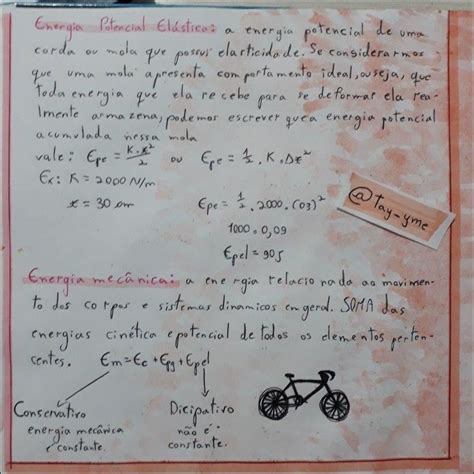 Energia Potencial Elástica: a energia potencial de uma
corda ou mola que possui elasticidade. Se considerarmos
que uma mola apresenta comportamento ideal, ou seja, que
toda energia que ela recebe para se deformar ela rea-
lmente armazena, podemos escrever que a energia potencial
acumulada nessa mola
vale: Epe = K.x²/2 ou Epe = 1/2 . K . Dx²
Ex: K = 2000 N/m
x = 30 cm
Epe = 1/2 . 2000 . (03)²
1000 . 0,09
Epel = 90J
@tay_yme
Energia mecânica: a energia relacionada ao movimen-
to dos corpos e sistemas dinamicos em geral. SOMA das
energias cinética e potencial de todos os elementos perten-
centes. Em = Ec + Epg + Epel
Conservativo
energia mecânica
é constante.
Dicipativo
não é
constante.